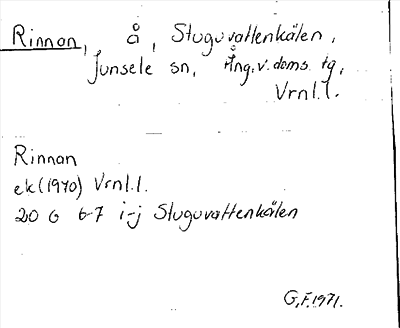 Rinnan, å, Stuguvattenkälen,
Junsele sn, Ång. v. doms. tg,
Vrnl. l.
Rinnan
ek (1970) Vrnl. l.
20 G 6-7 i-j Stuguvattenkälen
G.F. 1971.